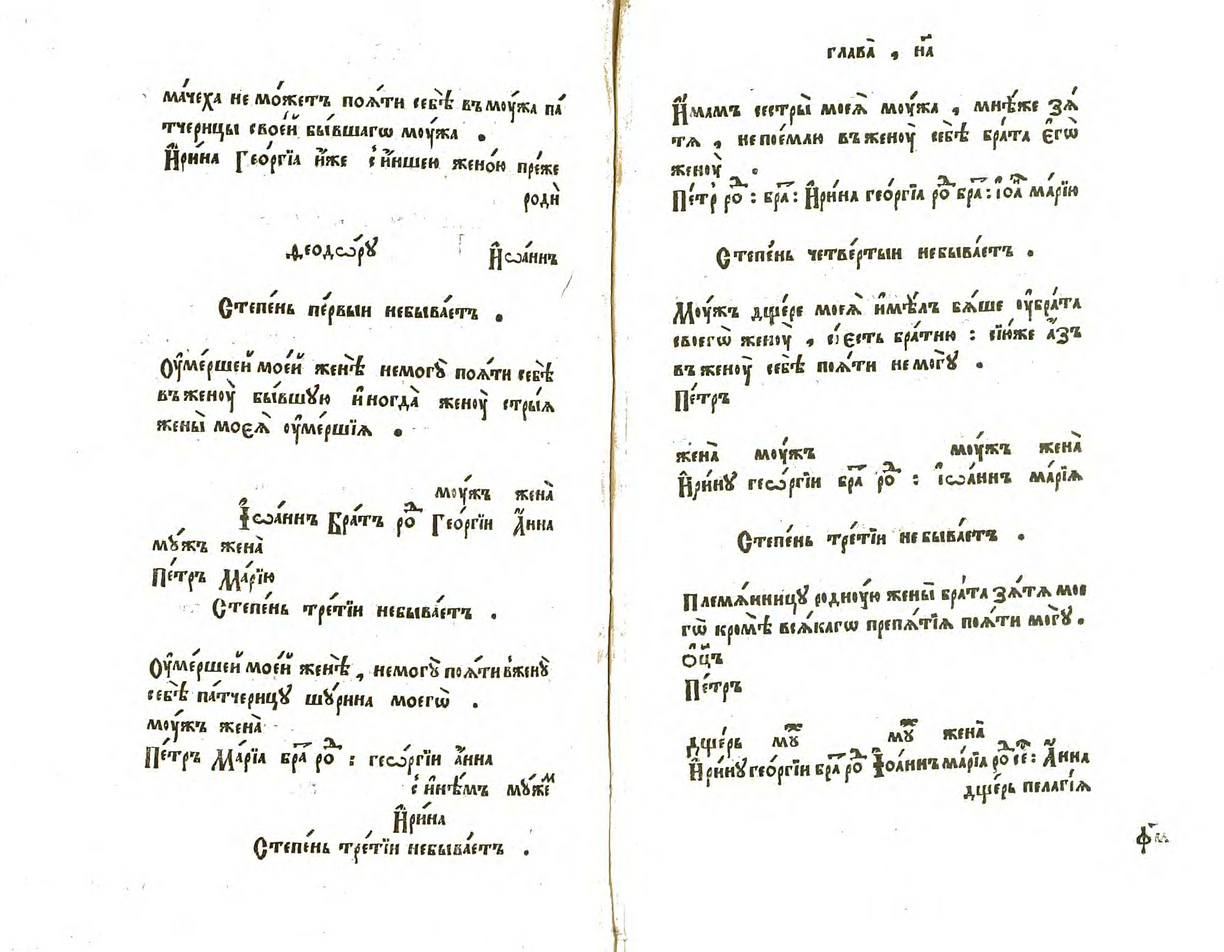 ма́чеха не мо́жетъ поѧ́ти себѣ̀ въ моу́жа па́
тчерицы свое́й бы́вшагѡ моу́жа .
И҆ри́на Гео́ргїа и҆́же с̾ и҆́ншею жено́ю пре́же
родѝ
Ѳеодѡ́ру И҆ѡа́ннъ
Степе́нь пе́рвыи небыва́етъ .
Оу҆ме́ршей мое́й женѣ̀ немогꙋ̀ поѧ́ти себѣ̀
въ женоу̀ бы́вшꙋю и҆ногда̀ женоу̀ стры́ѧ
жены̀ моеѧ̀ оу҆ме́ршїѧ .
моу́жъ жена̀
І҆ѡа́ннъ Бра́тъ роⷣ Гео́ргїи А҆́нна
мꙋ́жъ жена̀
Пе́тръ Ма́рїю
Степе́нь тре́тїи небыва́етъ .
Оу҆ме́ршей мое́й женѣ̀ , немогꙋ̀ поѧ́ти в̾женꙋ̀
себѣ̀ па́тчерицꙋ шꙋ́рина моегѡ̀ .
моу́жъ жена̀
Пе́тръ Ма́рїа бра̑ роⷣ : геѡ́ргїи а҆́нна
с̾ и҆нѣ́мъ мꙋ́жеⷨ
И҆ри́на
Степе́нь тре́тїи небыва́етъ .
глава̀ , н҃а
И҆́мамъ сестры̀ моеѧ̀ моу́жа , мнѣ́же зѧ́
тѧ , непое́млю въ женоу̀ себѣ̀ бра́та є҆гѡ̀
женоу̀ .
Пе́тр̾ роⷣ : бра̑ : И҆ри́на гео́ргїа роⷣ бра̑ : і҆ѡа̑ ма́рїю
Степе́нь четве́ртыи небыва́етъ .
Моу́жъ дще́ре моеѧ̀ и҆мѣ́лъ бѧ́ше оу҆бра́та
своегѡ̀ женоу̀ , сїе́сть бра́тню : сїю́же а҆́зъ
въ женоу̀ себѣ̀ поѧ́ти немогꙋ̀ .
Пе́тръ
жена̀ моу́жъ моу́жъ жена̀
И҆ри́нꙋ геѡ́ргїи бра̑ роⷣ : і҆ѡа́ннъ ма́рїѧ
Степе́нь тре́тїи небыва́етъ .
Племѧ́нницꙋ родноу́ю жены̀ бра́та зѧ́тѧ мое
гѡ̀ кромѣ̀ всѧ́кагѡ препѧ́тїѧ поѧ́ти могꙋ̀ .
Ѻ҆ц҃ъ
Пе́тръ
дще́рь мꙋⷤ мꙋⷤ жена̀
И҆ри́нꙋ гео́ргїи бра̑ роⷣ І҆оа́ннъ ма́рїа роⷣ сеⷭ҇ : А҆́нна
дще́рь пелагі́ѧ